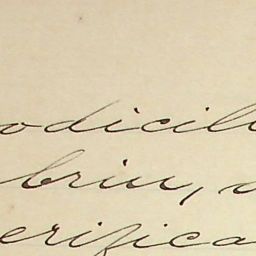 odicill
briu, d
erifica